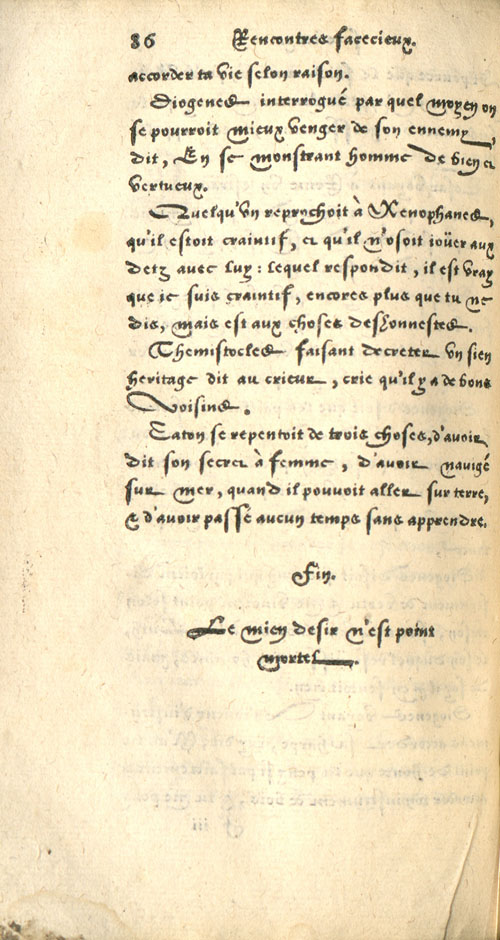 86 Rencontres facecieux.
accorder ta vie selon raison.
Diogenes interrogué par quel moyen on
se pourroit mieux venger de son ennemy,
dit, En se monstrant homme de bien et
vertueux.
Quelqu'vn reprochoit à Xenophanes,
qu'il estoit craintif, et qu'il n'osoit ioüer aux
detz avec luy: lequel respondit, il est vray
que ie suis craintif, encores plus que tu ne
dis, mais est aux choses deshonnestes.
Themistocles faisant decreter vn sien
heritage dit au crieur, crie qu'il y a de bons
voisins.
Caton se repentoit de trois choses, d'avoir
dit son secret à femme, d'avoir navigé
sur mer, quand il pouvoit aller sur terre,
& d'avoir passé aucun temps sans apprendre.
Fin.
Le mien desir n'est point
mortel.